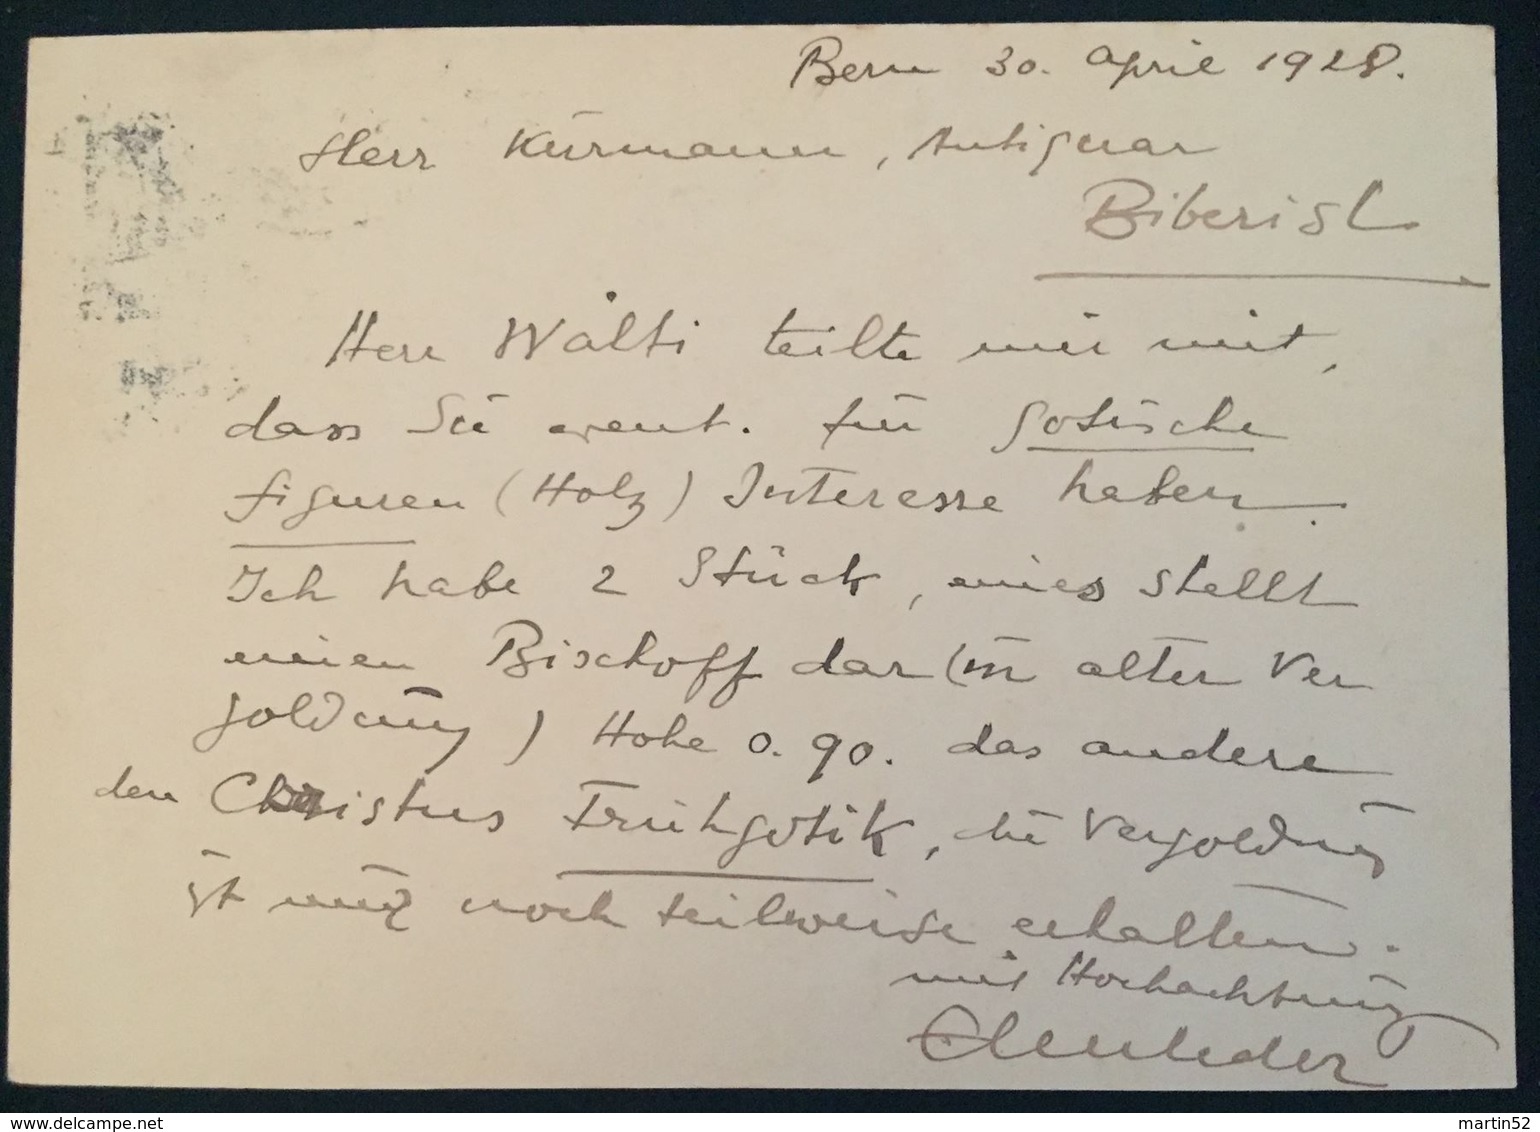 Bern 30. April 1928.
Herr Kürmann, Antiquar
Biberist
Herr Wälti teilte mir mit,
dass Sie event. für gotische
figuren (Holz) Interesse haben.
Ich habe 2 Stück, eines stellt
einen Bischoff dar (in alter Ver
goldung) Hohe 0.90. das andere
den Christus Frühgotik, die Vergoldung
ist nur noch teilweise erhalten.
mit Hochachtung
www.delcampe.net
martin52